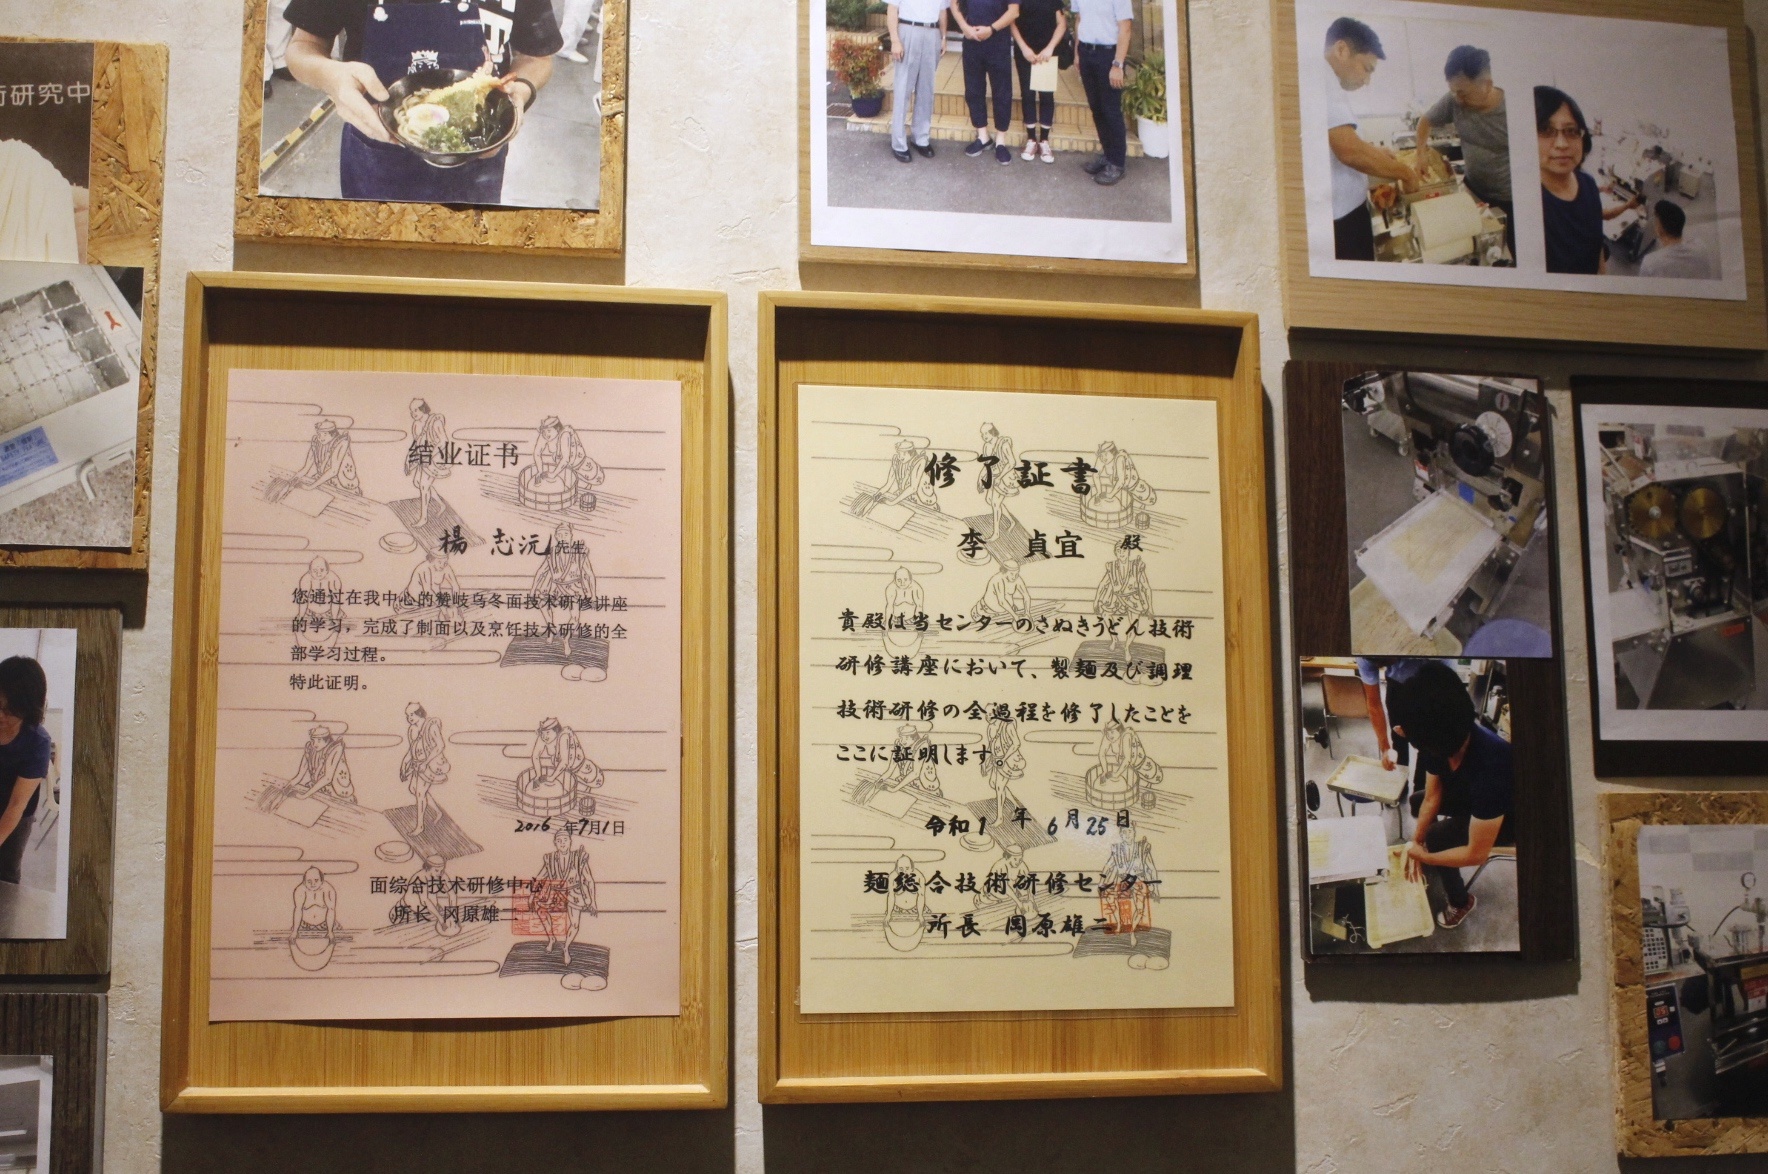 術研究中
结业证书
楊 志沅 先生
您通过在我中心的赞岐乌冬面技术研修讲座
的学习，完成了制面以及烹饪技术研修的全
部学习过程。
特此证明。
2016 年7月1日
面综合技术研修中心
所长 冈原雄二
修了証書
李 貞宜 殿
貴殿は当センターのさぬきうどん技術
研修講座において、製麺及び調理
技術研修の全過程を修了したことを
ここに証明します。
令和1 年 6月25日
麺総合技術研修センター
所長 岡原雄二